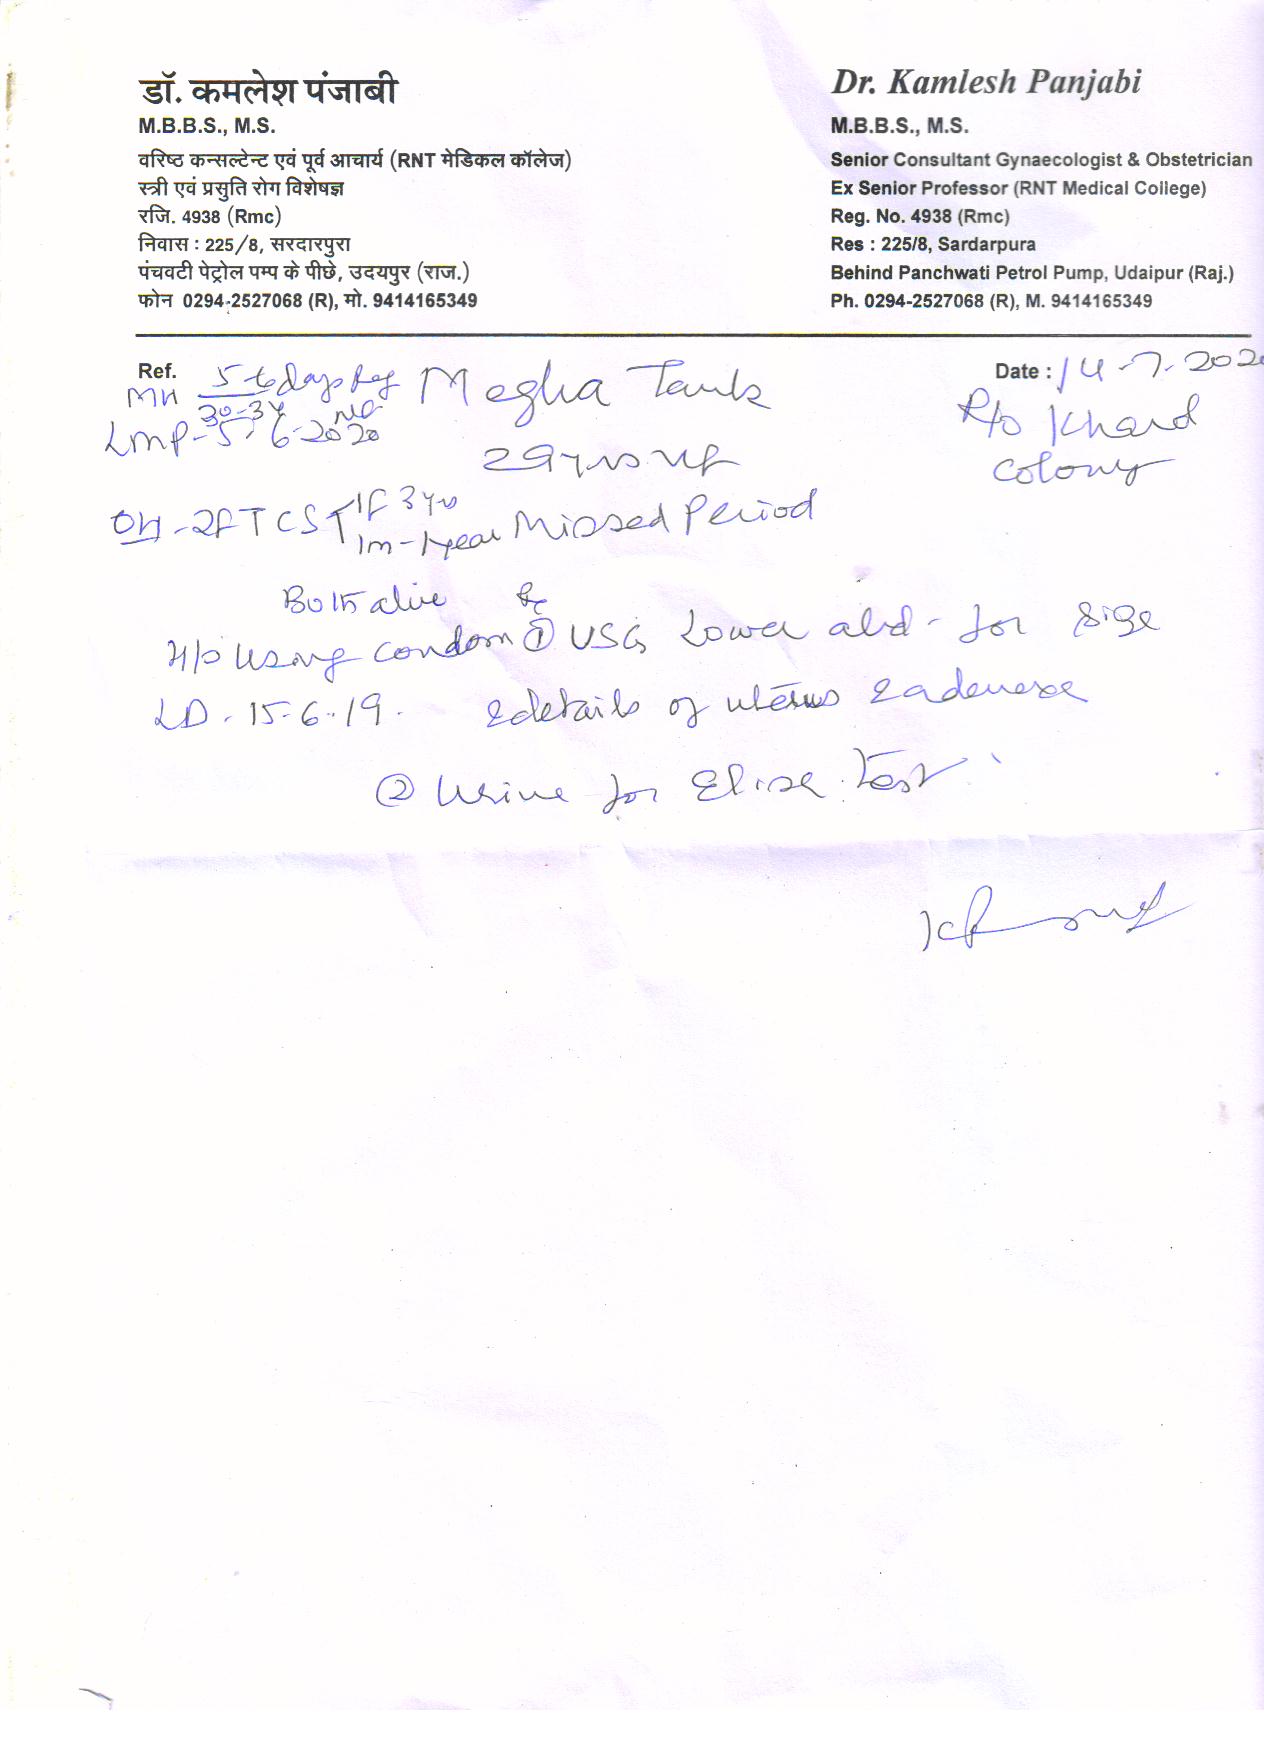 डॉ. कमलेश पंजाबी
M.B.B.S., M.S.
वरिष्ठ कन्सल्टेन्ट एवं पूर्व आचार्य (RNT मेडिकल कॉलेज)
स्त्री एवं प्रसुति रोग विशेषज्ञ
रजि. 4938 (Rmc)
निवास : 225/8, सरदारपुरा
पंचवटी पेट्रोल पम्प के पीछे, उदयपुर (राज.)
फोन 0294-2527068 (R), मो. 9414165349
Dr. Kamlesh Panjabi
M.B.B.S., M.S.
Senior Consultant Gynaecologist & Obstetrician
Ex Senior Professor (RNT Medical College)
Reg. No. 4938 (Rmc)
Res : 225/8, Sardarpura
Behind Panchwati Petrol Pump, Udaipur (Raj.)
Ph. 0294-2527068 (R), M. 9414165349
Ref.
Date : 14-7-2020
MH 5-6 days Reg
30-34
LMP-5-6-2020
Megha Tank
29 yrs
R/o Khard
Colony
OH - 2FTCS 1F 3 yrs
1m - 1 year
Missed Period
Both alive
H/o Using condom
LD - 15-6-19
① USG Lower abd - for size
& details of uterus & adenexe
② Urine for Elisa Test